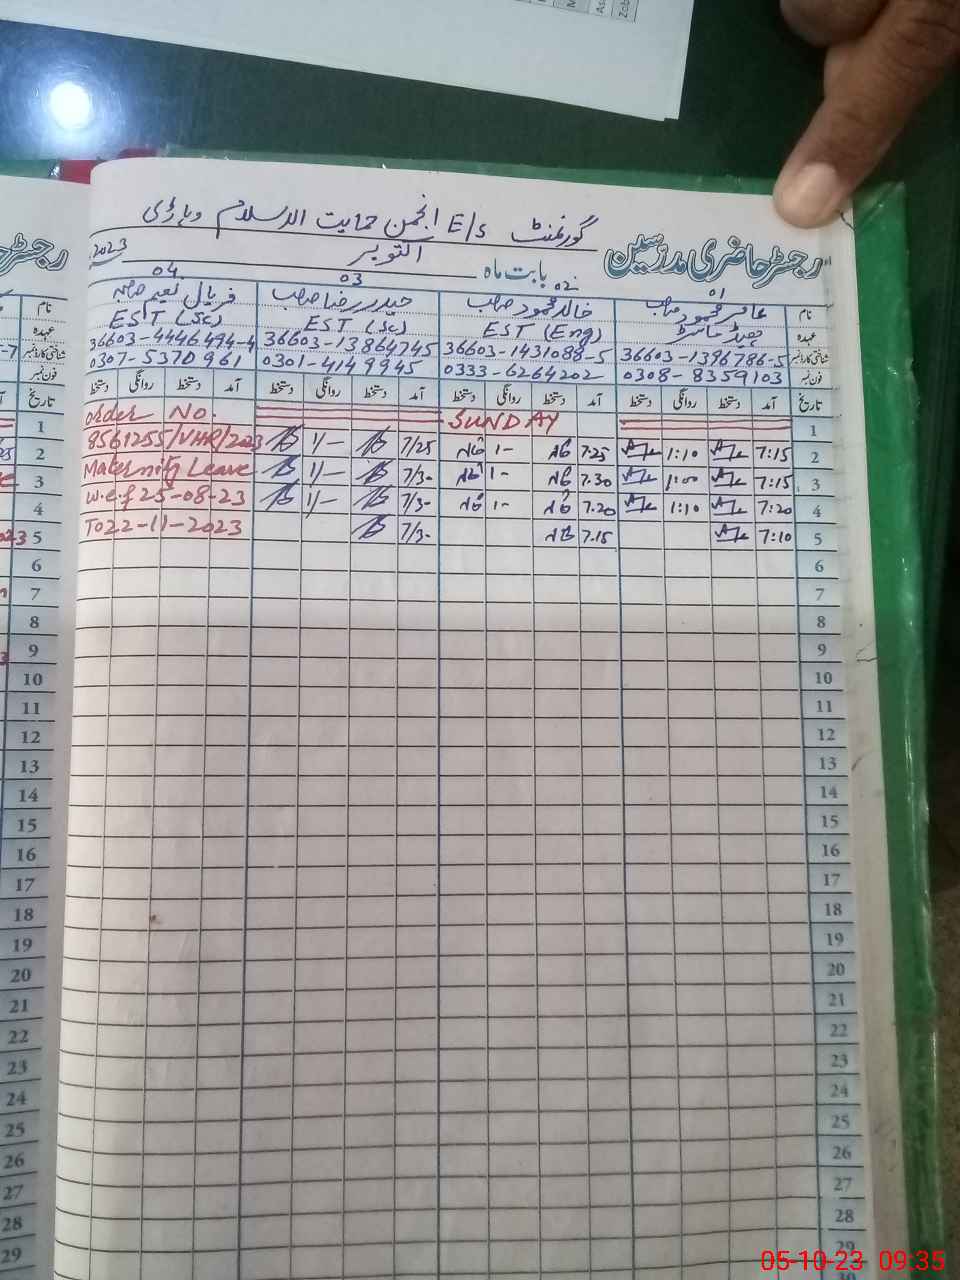 گورنمنٹ E/S انجمن حمایت الاسلام وہاڑی
رجسٹر حاضری مدرسین بابت ماہ اکتوبر 2023
01 02 03 04
نام عامر محمود صاحب خالد محمود صاحب حیدر رضا صاحب فریال نعیم صاحبہ
عہدہ ہیڈ ماسٹر EST (Eng) EST (Sc) EST (Sc)
شناختی کارڈ نمبر 36603-1396786-5 36603-1431088-5 36603-13864745 36603-4446494-4
فون نمبر 0308-8359103 0333-6264202 0301-4149945 0307-5370961
تاریخ آمد دستخط روانگی دستخط آمد دستخط روانگی دستخط آمد دستخط روانگی دستخط آمد دستخط روانگی دستخط
1 SUNDAY order No.
2 7:15 1:10 7.25 1- 7/25 1/- 8561255/VHR/2023
3 7:15 1:00 7.30 1- 7/3- 1/- Maternity Leave
4 7:20 1:10 7.20 1- 7/3- 1/- w.e.f 25-08-23
5 7:10 7.15 7/3- To 22-11-2023
6
7
8
9
10
11
12
13
14
15
16
17
18
19
20
21
22
23
24
25
26
27
28
29
30
05-10-23 09:35